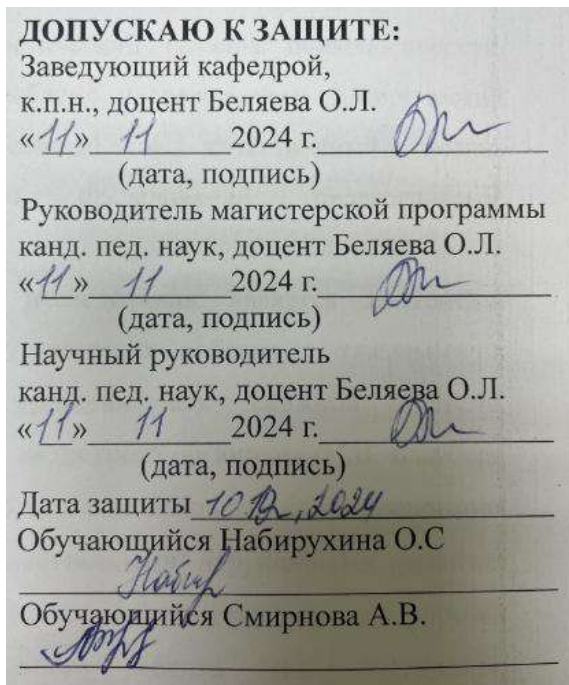 ДОПУСКАЮ К ЗАЩИТЕ:
Заведующий кафедрой,
к.п.н., доцент Беляева О.Л.
«11» 11 2024 г.
(дата, подпись)
Руководитель магистерской программы
канд. пед. наук, доцент Беляева О.Л.
«11» 11 2024 г.
(дата, подпись)
Научный руководитель
канд. пед. наук, доцент Беляева О.Л.
«11» 11 2024 г.
(дата, подпись)
Дата защиты 10.12.2024
Обучающийся Набирухина О.С
Обучающийся Смирнова А.В.